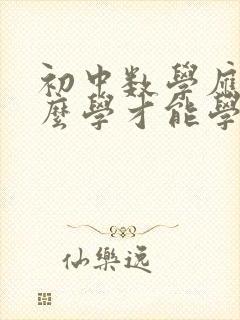 初中数學應
麼學才能學
仙樂逸